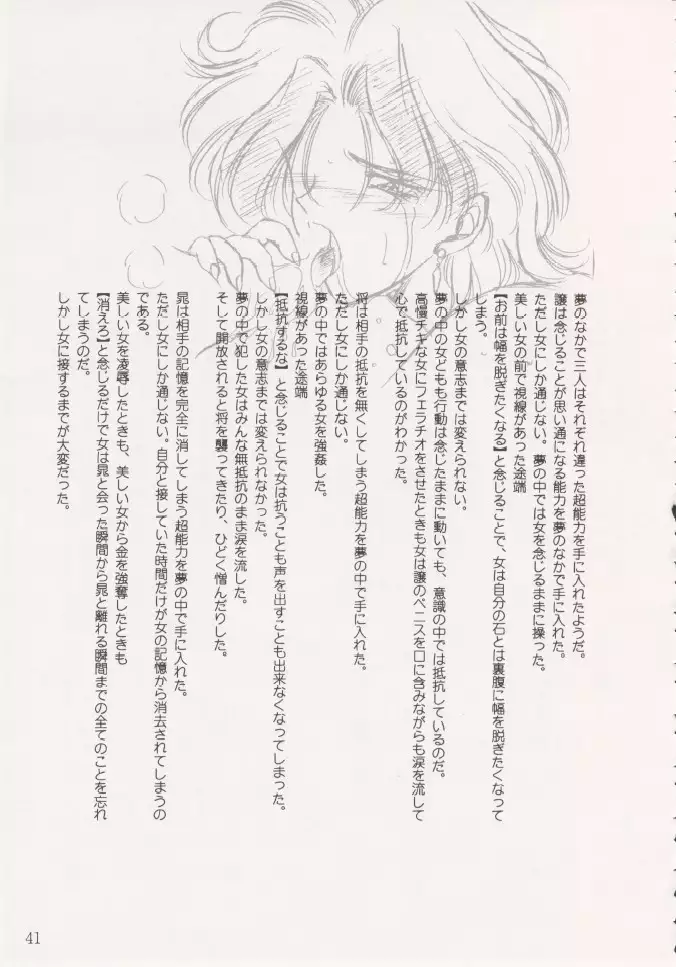 夢のなかで三人はそれぞれ違った超能力を手に入れたようだ。
譲は念じることが思い通になる能力を夢のなかで手に入れた。
ただし女にしか通じない。夢の中では女を念じるままに操った。
美しい女の前で視線があった途端
【お前は幅を脱ぎたくなる】と念じることで、女は自分の石とは裏腹に幅を脱ぎたくなって
しまう。
しかし女の意志までは変えられない。
夢の中の女どもも行動は念じたままに動いても、意識の中では抵抗しているのだ。
高慢チキな女にフェラチオをさせたときも女は譲のペニスを口に含みながらも涙を流して
心で抵抗しているのがわかった。
将は相手の抵抗を無くしてしまう超能力を夢の中で手に入れた。
ただし女にしか通じない。
夢の中ではあらゆる女を強姦した。
視線があった途端
【抵抗するな】と念じることで女は抗うことも声を出すことも出来なくなってしまった。
しかし女の意志までは変えられなかった。
夢の中で犯した女はみんな無抵抗のまま涙を流した。
そして開放されると将を襲ってきたり、ひどく憎んだりした。
晁は相手の記憶を完全に消してしまう超能力を夢の中で手に入れた。
ただし女にしか通じない。自分と接していた時間だけが女の記憶から消去されてしまうの
である。
美しい女を凌辱したときも、美しい女から金を強奪したときも
【消えろ】と念じるだけで女は晁と会った瞬間から晁と離れる瞬間までの全てのことを忘れ
てしまうのだ。
しかし女に接するまでが大変だった。
41